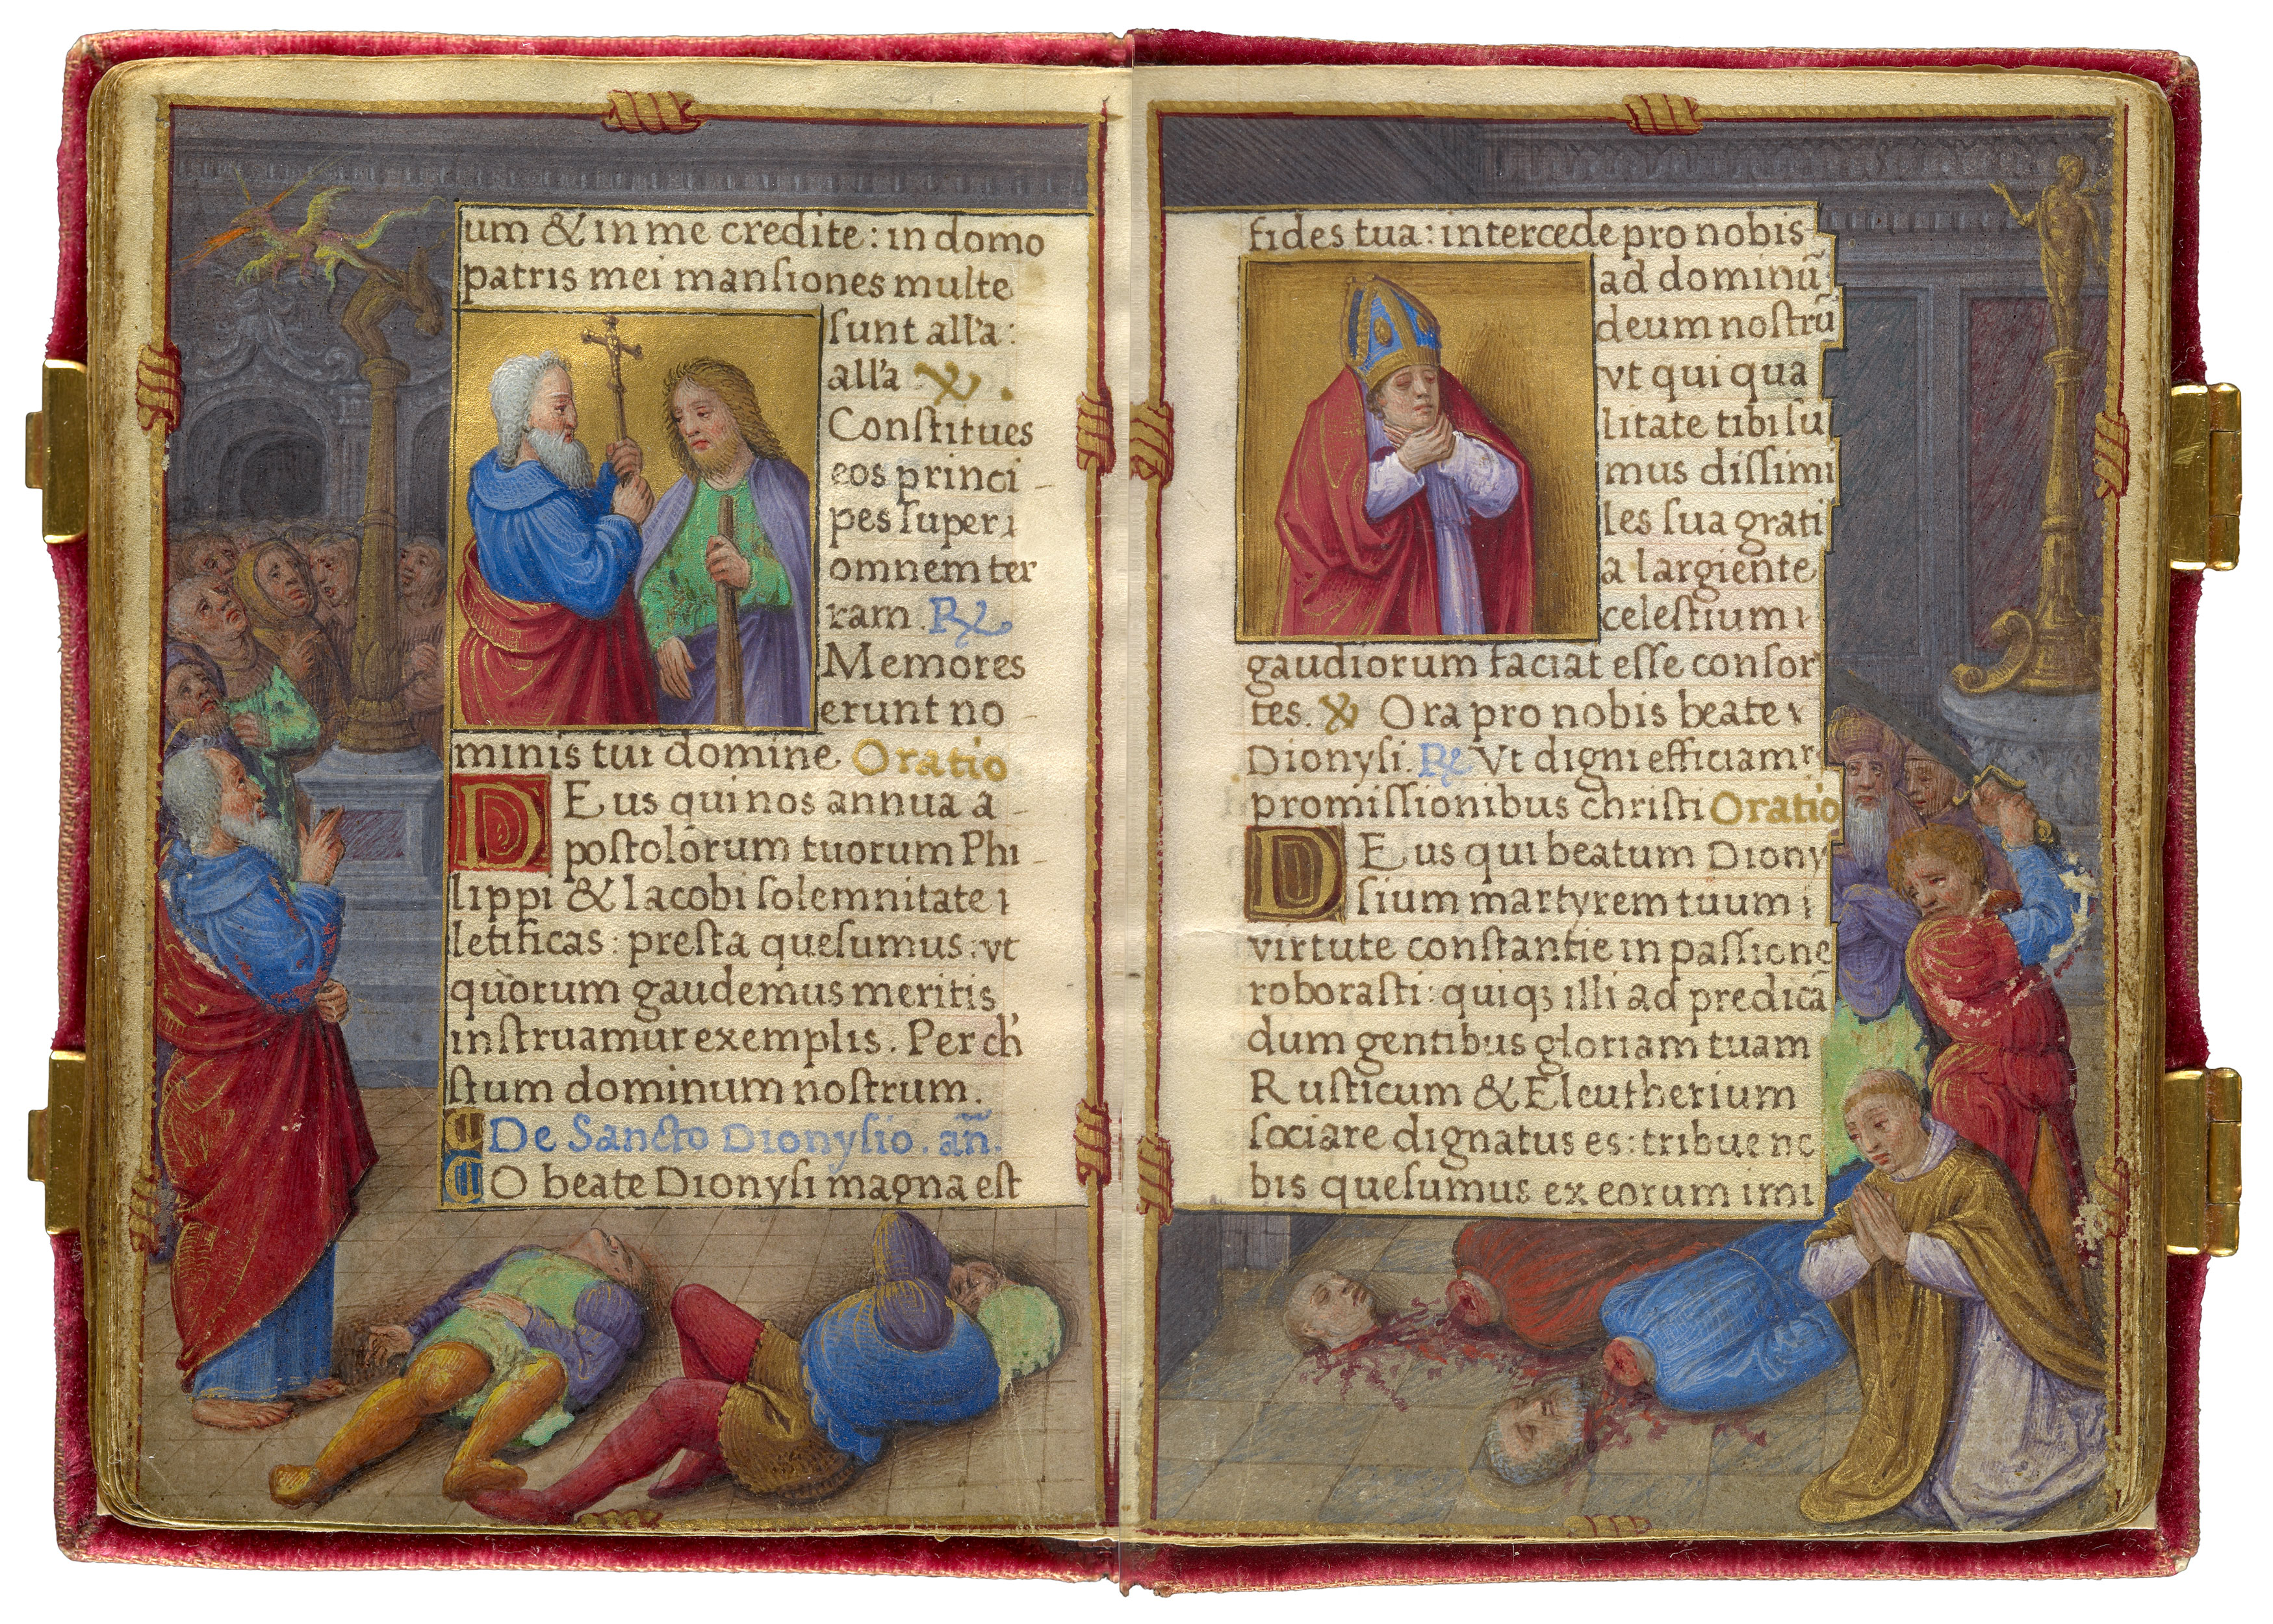 um & in me credite: in domo
patris mei manſiones multe
ſunt all'a:
all'a ℣.
Conſtitues
eos princi-
pes ſuper
omnem ter
ram. ℟
Memores
erunt no-
minis tui domine Oratio
DEus qui nos annua a-
poſtolorum tuorum Phi-
lippi & Iacobi ſolemnitate
letificas: preſta queſumus: vt
quorum gaudemus meritis
inſtruamur exemplis. Per ch'
ſtum dominum noſtrum.
De Sancto Dionyſio. an̄.
O beate Dionyſi magna eſt
fides tua: intercede pro nobis
ad dominū
deum noſtrū
vt qui qua
litate tibi ſu
mus diſſimi
les ſua grati
a largiente
celeſtium
gaudiorum faciat eſſe conſor
tes. ℣ Ora pro nobis beate
Dionyſi. ℟ Vt digni efficiamr
promiſſionibus chriſti Oratio
DEus qui beatum Diony
ſium martyrem tuum
virtute conſtantie in paſſione
roboraſti: quiqꝫ illi ad predicā
dum gentibus gloriam tuam
Ruſticum & Eleutherium
ſociare dignatus es: tribue no
bis queſumus ex eorum imi